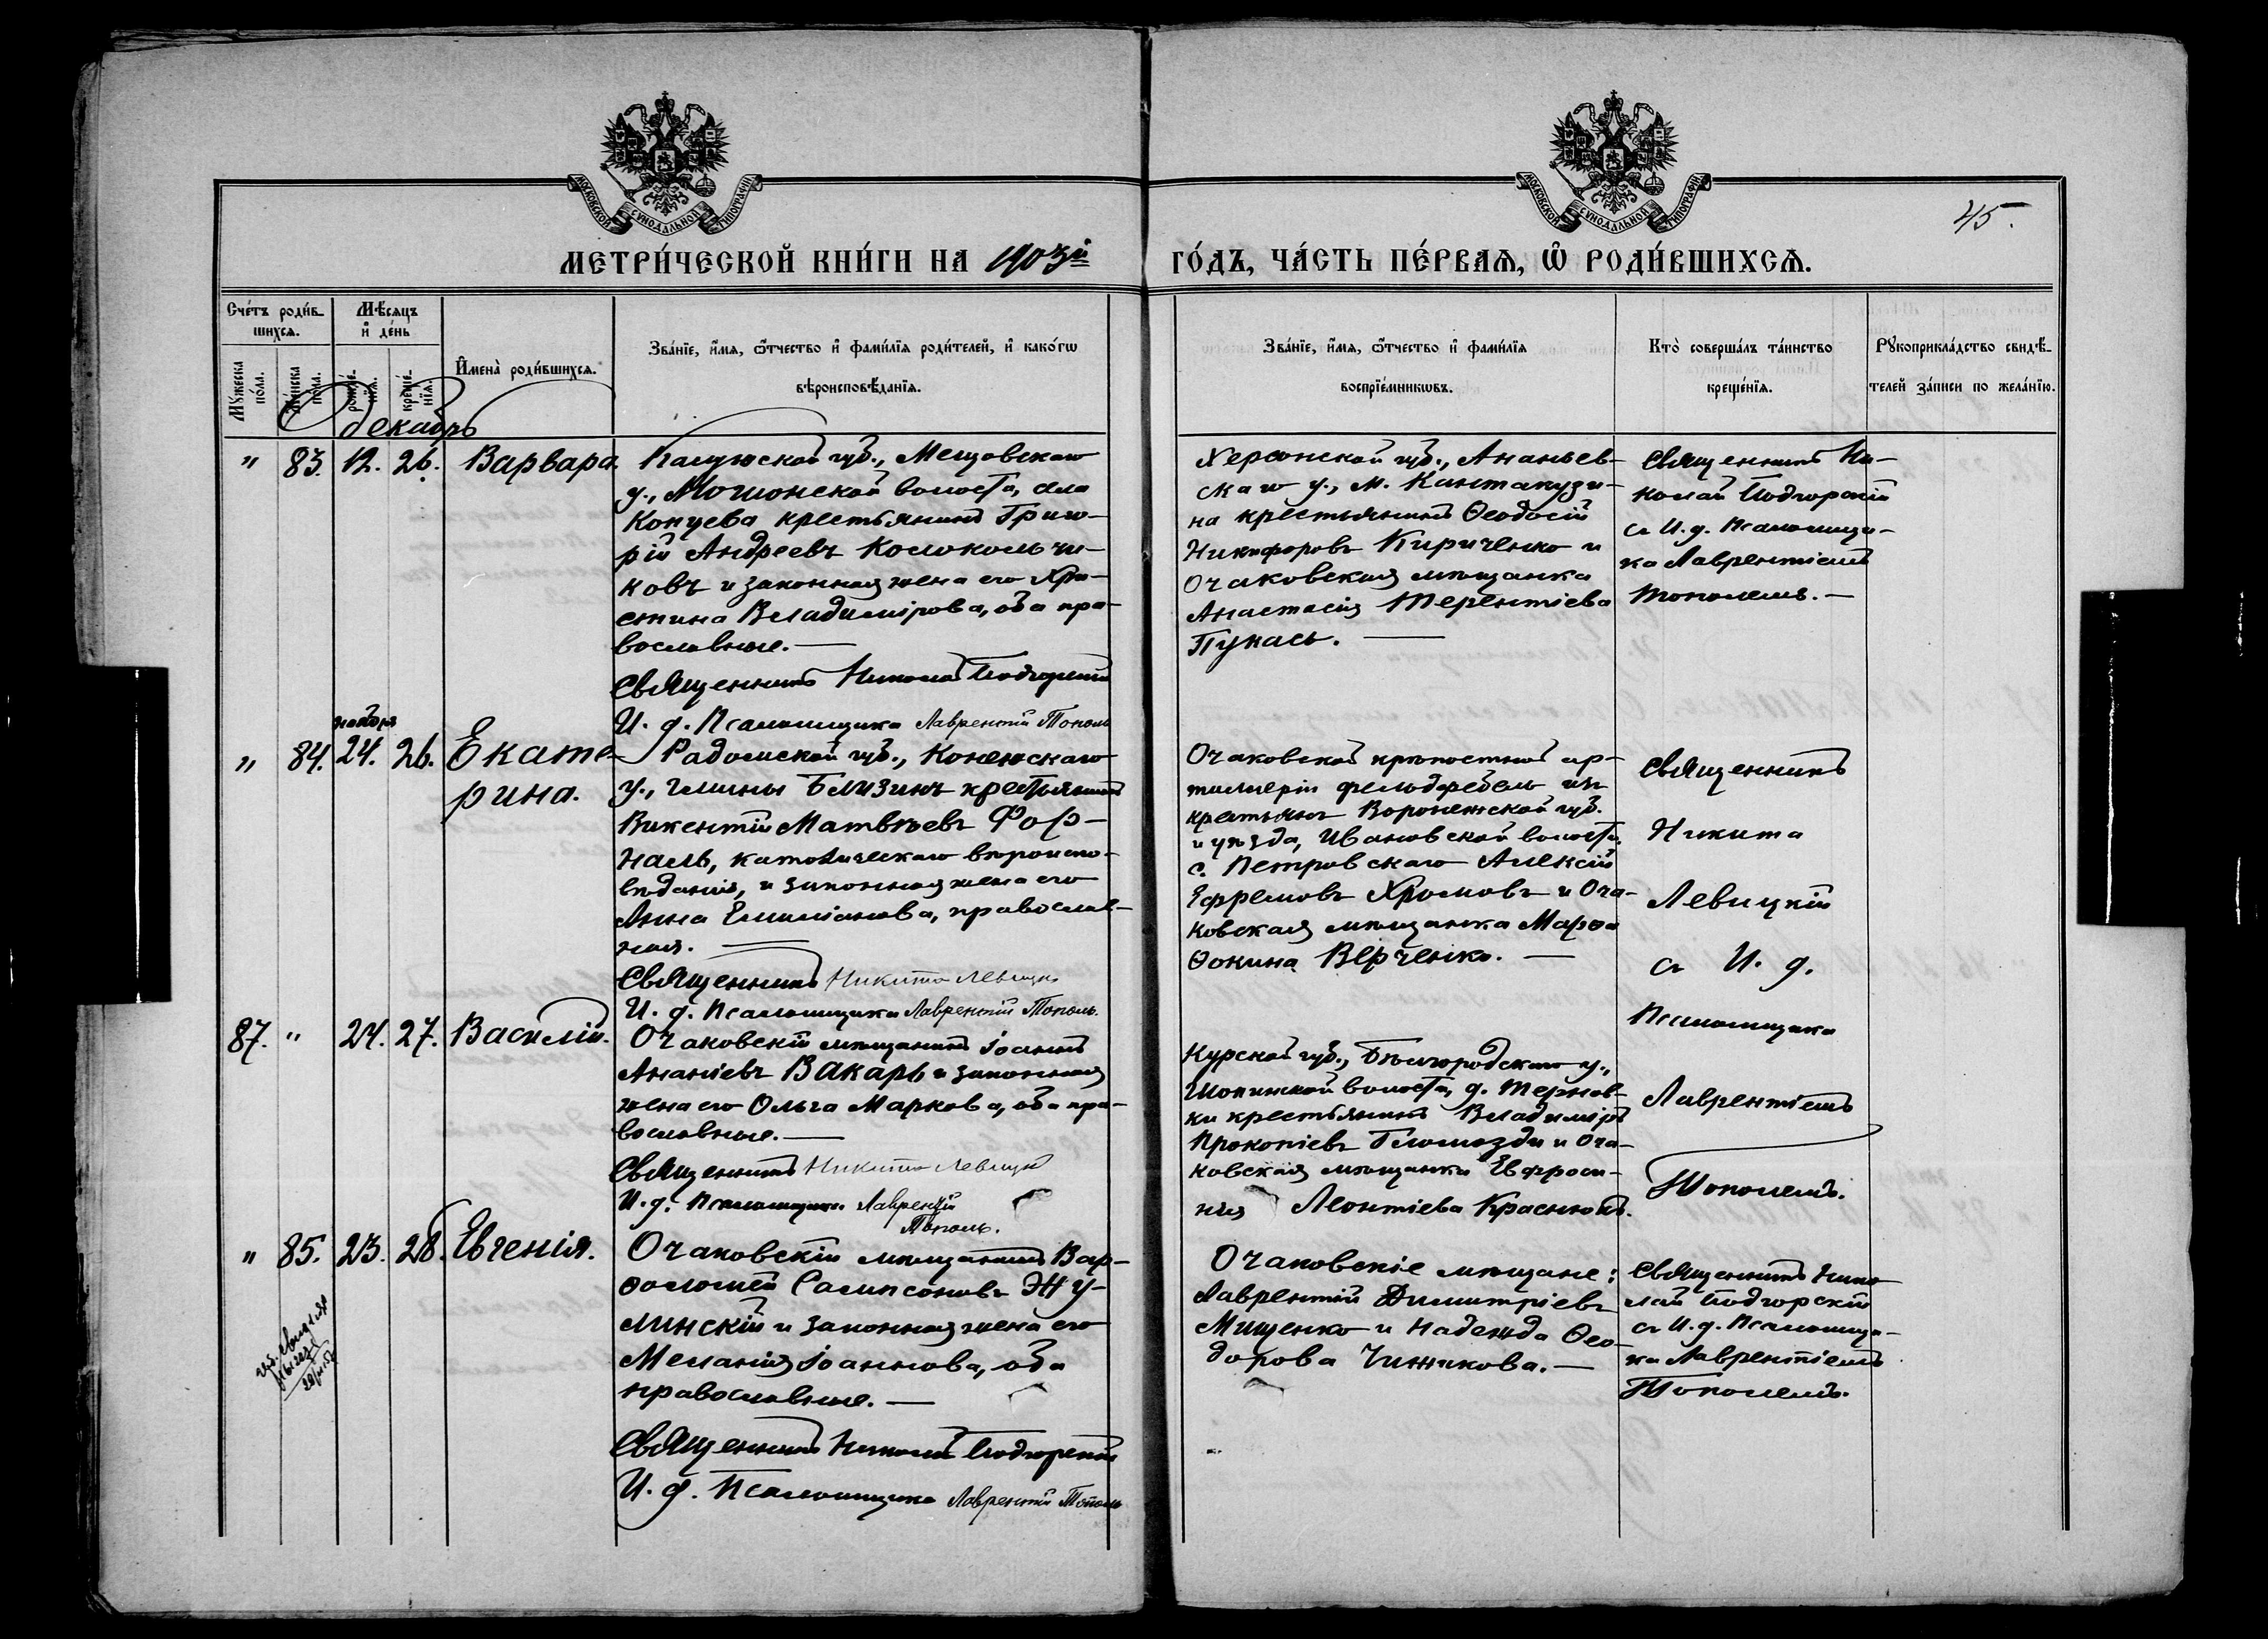 МОСКОВСКОЙ СѴНОДАЛЬНОЙ ТИПОГРАФІИ
МОСКОВСКОЙ СѴНОДАЛЬНОЙ ТИПОГРАФІИ
45.
МЕТРИ́ЧЕСКОЙ КНИ́ГИ НА 1903й
ГО́ДЪ, ЧА́СТЬ ПЕ́РВАѦ, Ѡ РОДИ́ВШИХСѦ.
Сче́тъ роди́в-
шихсѧ.
Мѣ́сѧцъ
и҆ де́нь
Мꙋ́жеска
по́ла.
Же́нска
по́ла.
рожде́-
нїѧ.
креще́-
нїѧ.
И҆мена̀ роди́вшихсѧ.
Зва́нїе, и҆́мѧ, ѻ҆́тчество и҆ фами́лїѧ роди́телей, и҆ како́гѡ
вѣроисповѣ́данїѧ.
Зва́нїе, и҆́мѧ, ѻ҆́тчество и҆ фами́лїѧ
воспрїе́мникѡвъ.
Кто̀ соверша́лъ та́инство
креще́нїѧ.
Рꙋкоприкла́дство свидѣ́-
телей за́писи по жела́нїю.
Декабрь
" 83. 12. 26. Варвара.
Калужской губ., Мещовскаго
у., Мошонской волости, села
Копцева крестьянинъ Григо-
рій Андреевъ Колокольчи-
ковъ и законная жена его Хри-
стина Владимірова, оба пра-
вославные. —
Священникъ Николай Подгорскій
И. д. Псаломщика Лаврентій Тополь
Херсонской губ., Ананьев-
скаго у., м. Кантакузи-
на крестьянинъ Ѳеодосій
Никифоровъ Кириченко и
Очаковская мѣщанка
Анастасія Терентіева
Пукась. —
Священникъ Ни-
колай Подгорскій
съ И. д. Псаломщи-
ка Лаврентіемъ
Тополемъ. —
ноября
" 84. 24. 26. Екате-
рина.
Радомской губ., Конскаго
у., гмины Близинъ крестьянинъ
Викентій Матвѣевъ Фор-
наль, католическаго вѣроиспо-
вѣданія, и законная жена его
Анна Емиліанова, православ-
ная. —
Священникъ Никита Левицкій
И. д. Псаломщика Лаврентій Тополь.
Очаковской крѣпостной ар-
тиллеріи фельдфебель изъ
крестьянъ Воронежской губ.
и уѣзда, Ивановской волости,
с. Петровскаго Алексій
Ефремовъ Хромовъ и Оча-
ковская мѣщанка Марѳа
Ѳокина Верченко. —
Священникъ
Никита
Левицкій
съ И. д.
Псаломщика
Лаврентіемъ
Тополемъ.
87. " 24. 27. Василій.
Очаковскій мѣщанинъ Іоаннъ
Ананіевъ Вакарь и законная
жена его Ольга Маркова, оба пра-
вославные. —
Священникъ Никита Левицкій
И. д. Псаломщика Лаврентій
Тополь.
Курской губ., Бѣлгородскаго у.,
Шопинской волости, д. Тернов-
ки крестьянинъ Владиміръ
Прокопіевъ и Оча-
ковская мѣщанка Евфроси-
нія Леонтіева Краснюкъ.
" 85. 23. 28. Евгенія.
Очаковскій мѣщанинъ Вар-
ѳоломей Сампсоновъ Жу-
линскій и законная жена его
Меланія Іоаннова, оба
православные. —
Священникъ Николай Подгорскій
И. д. Псаломщика Лаврентій Тополь
Очаковскіе мѣщане:
Лаврентій Димитріевъ
Мищенко и Надежда Ѳео-
дорова Чижикова. —
Священникъ Нико-
лай Подгорскій
съ И. д. Псаломщи-
ка Лаврентіемъ
Тополемъ.